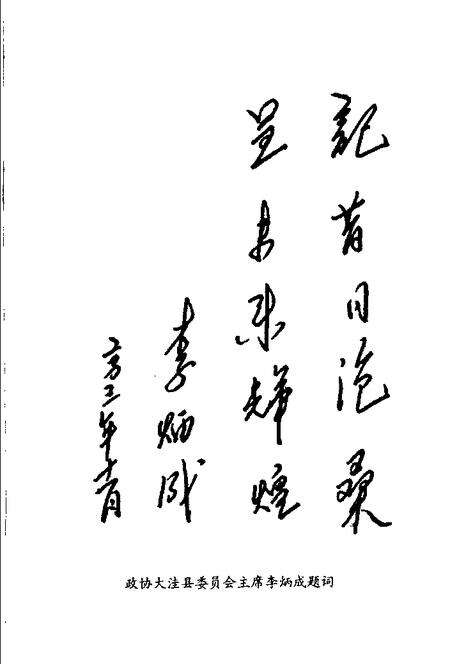 記昔日沧桑
呈未来辉煌
李炳成
二〇〇三年
政协大洼县委员会主席李炳成题词